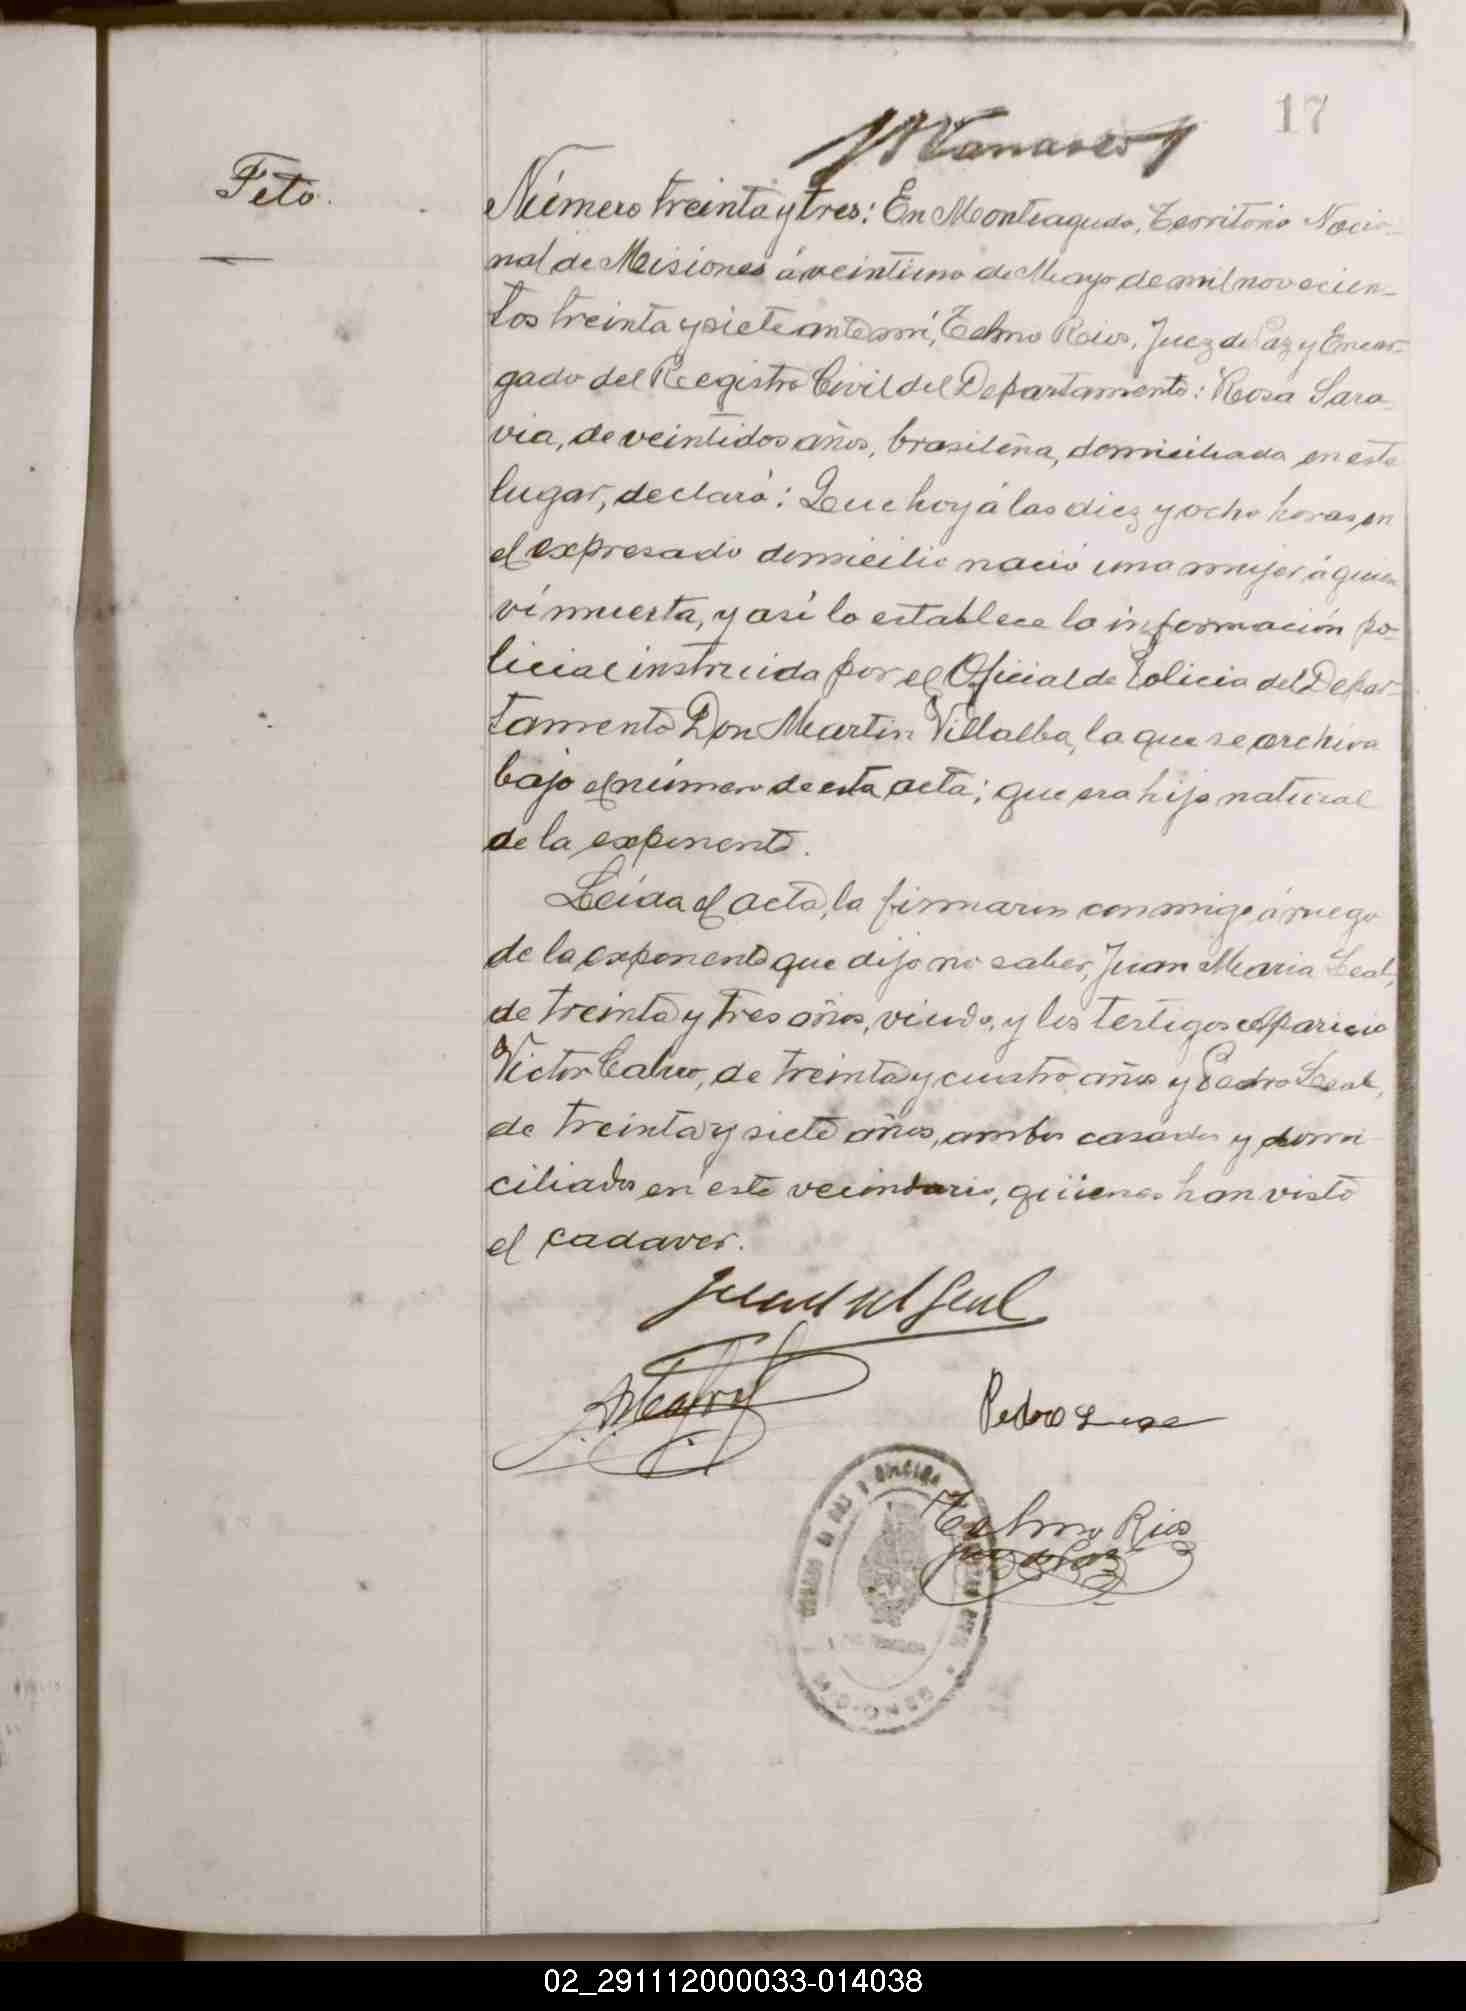 17
Feto.
Número treinta y tres: En Monteagudo, Territorio Nacio-
nal de Misiones á veintiuno de Mayo de mil novecien-
tos treinta y siete ante mí, Telmo Rios, Juez de Paz y Encar-
gado del Registro Civil del Departamento: Rosa Sara-
via, de veintidos años, brasileña, domiciliada en este
lugar, declaró: Que hoy á las diez y ocho horas, en
el expresado domicilio nació una mujer á quien
ví muerta, y así lo establece la información po-
licial instruida por el Oficial de Policia del Depar-
tamento Don Martin Villalba, la que se archiva
bajo el número de esta acta; que era hija natural
de la exponente.
Leída el acta, la firmaron conmigo á ruego
de la exponente que dijo no saber, Juan Maria Leal,
de treinta y tres años, viudo, y los testigos Aparicio
Victor Calvo, de treinta y cuatro años y Pedro Leal,
de treinta y siete años, ambos casados y domi-
ciliados en este vecindario, quienes han visto
el cadaver.
Juan M Leal
Pedro
Telmo Rios
Juez de Paz
02_291112000033-014038